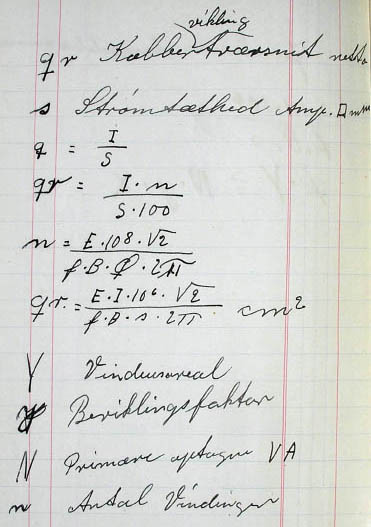 vikling
qv Kobbertværsnit netto
s Strømtæthed Amp. □ mm
q = I / S
qv = I · n / S · 100
n = E · 10⁸ · √2 / f · B · Q · 2π
qv. = E · I · 10⁶ · √2 / f · B · s · 2π cm²
Y Vinduesareal
y Beviklingsfaktor
N Primære optagne VA
n Antal Vindinger